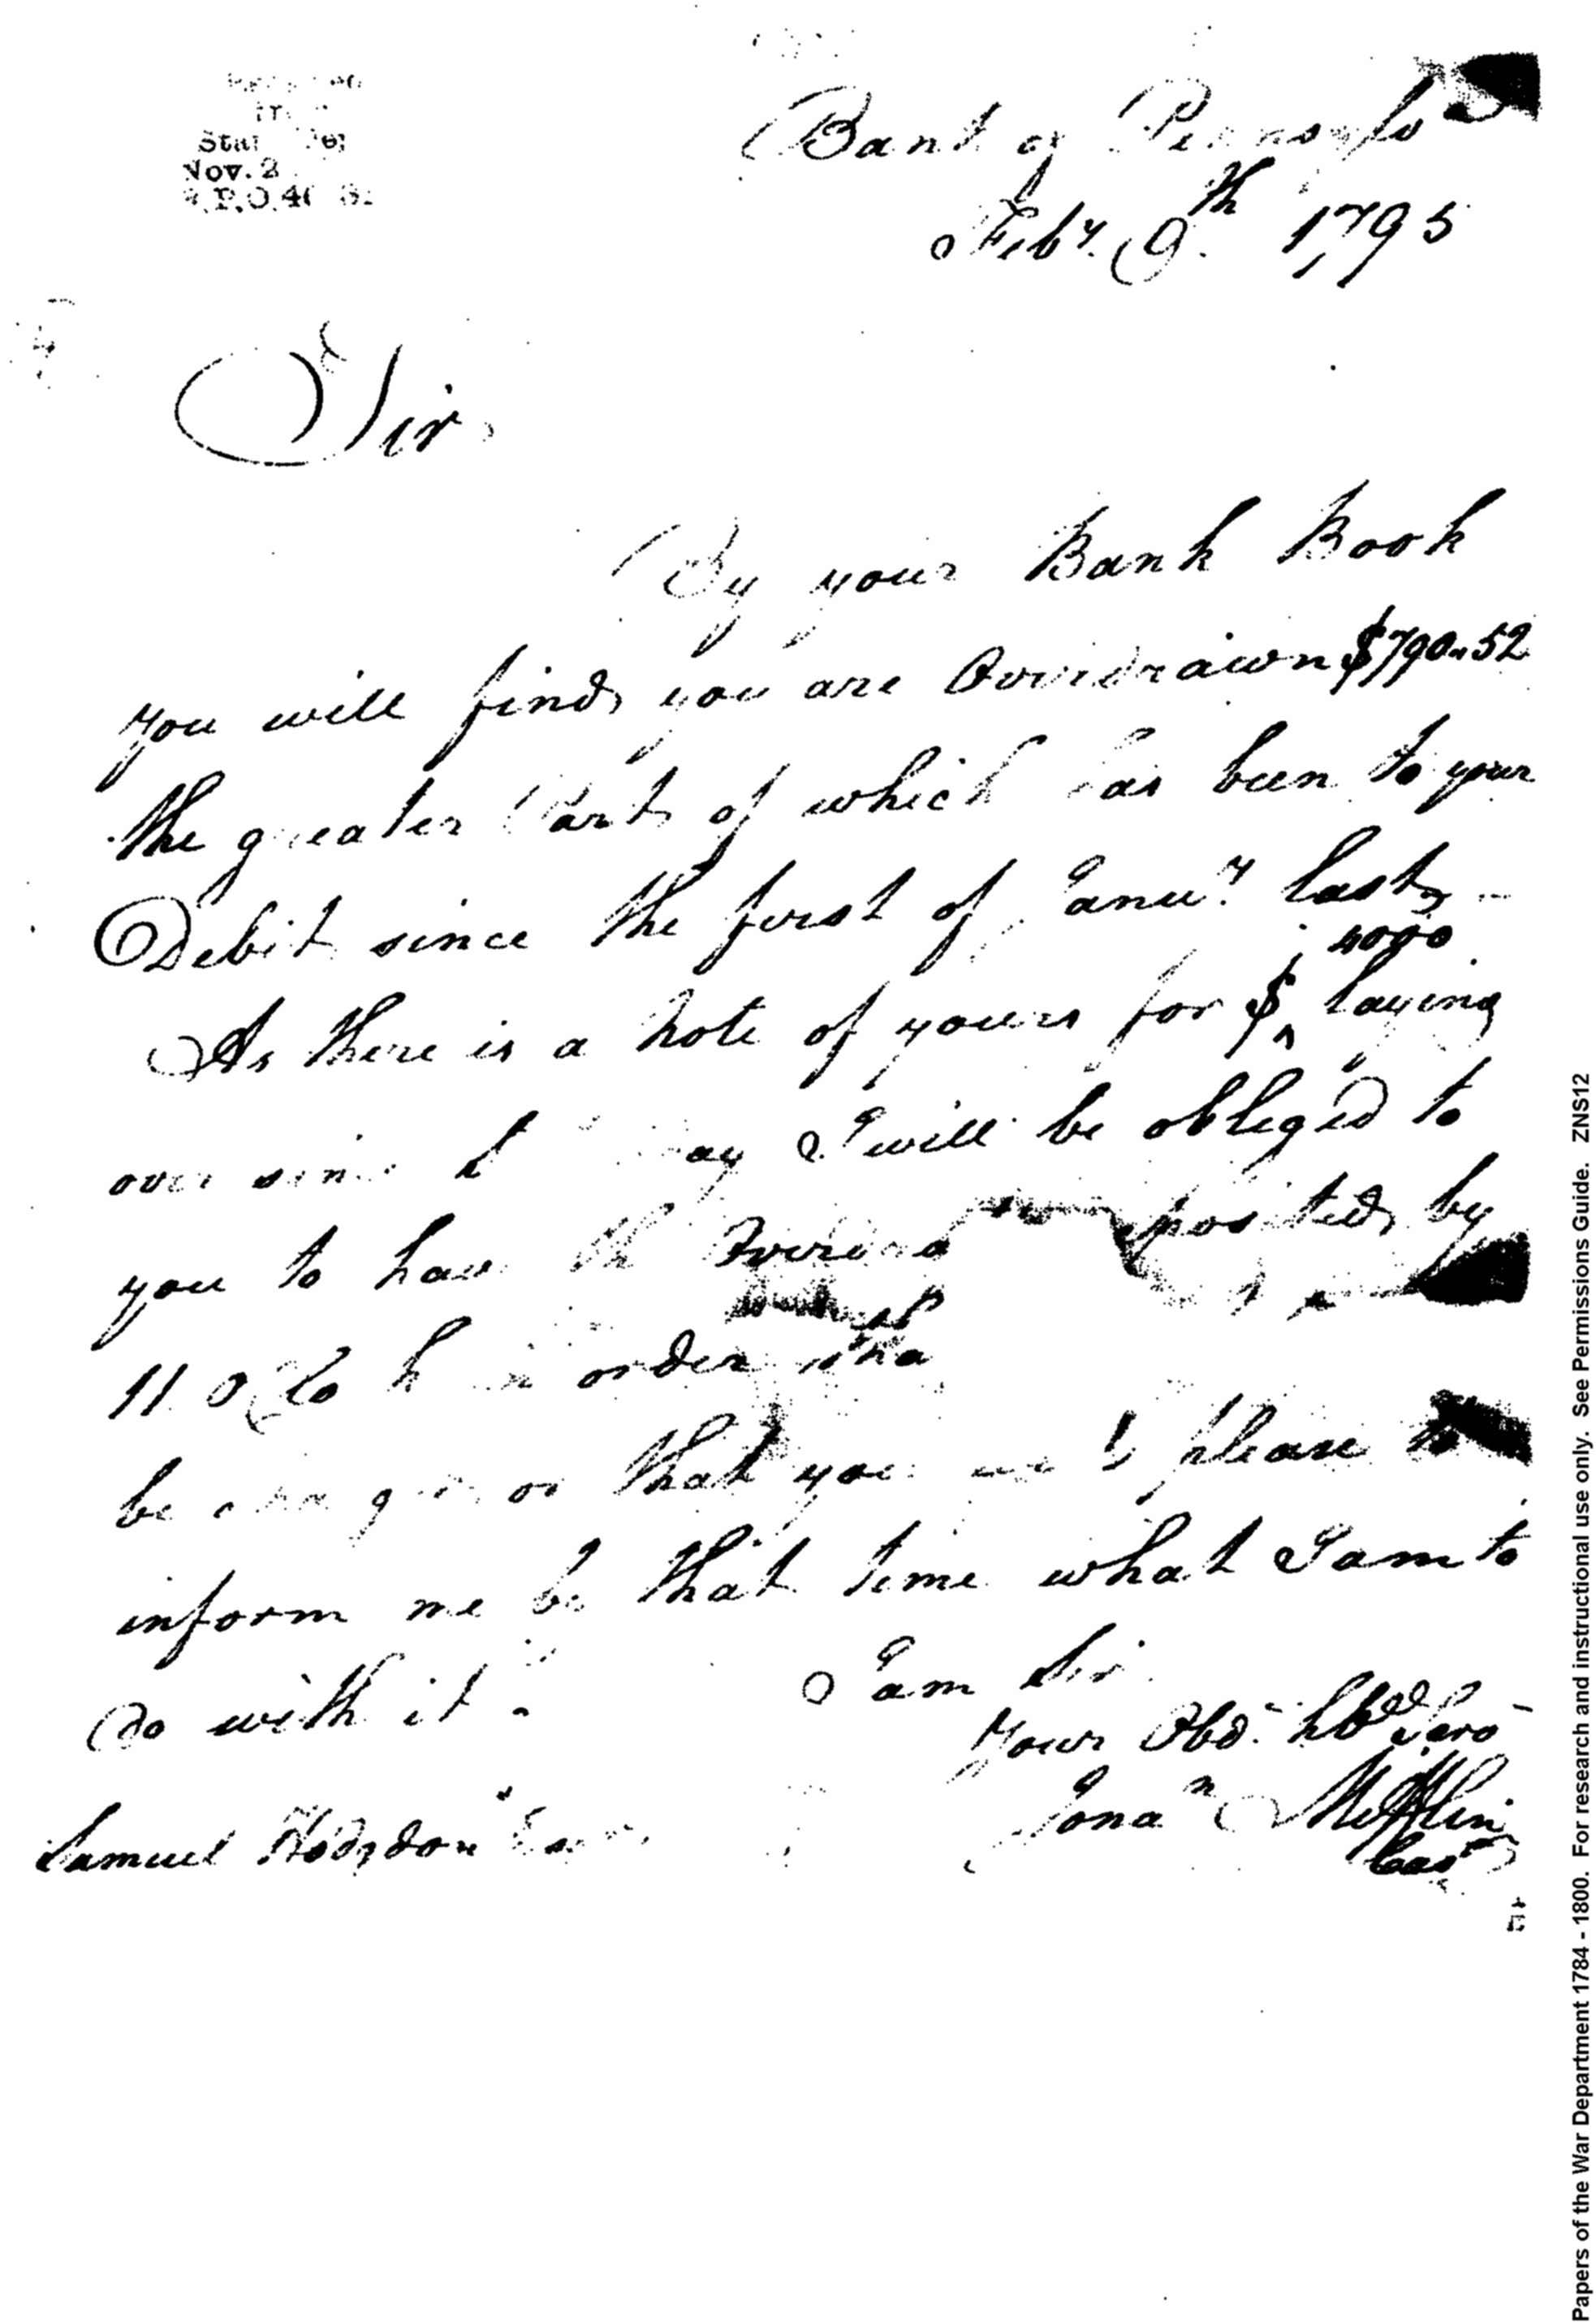 Bank of Pennsylva
Feby. 9th 1795
Sir
By your Bank Book
you will find you are Overdrawn $790..52
the greater Part of which has been to your
Debit since the first of Janu.y last
4000
As there is a Note of yours for $ ^ laying
over since I will be obleged to
you to have the posited by
11 oClo order
be or that you will please to
inform me by that time what I am to
do with it.
I am Sir
Your Obd. hble Serv
Samuel Hodgdon Esqr
Jonan Mifflin
Casr
Nov. 2
Papers of the War Department 1784 - 1800. For research and instructional use only. See Permissions Guide. ZNS12